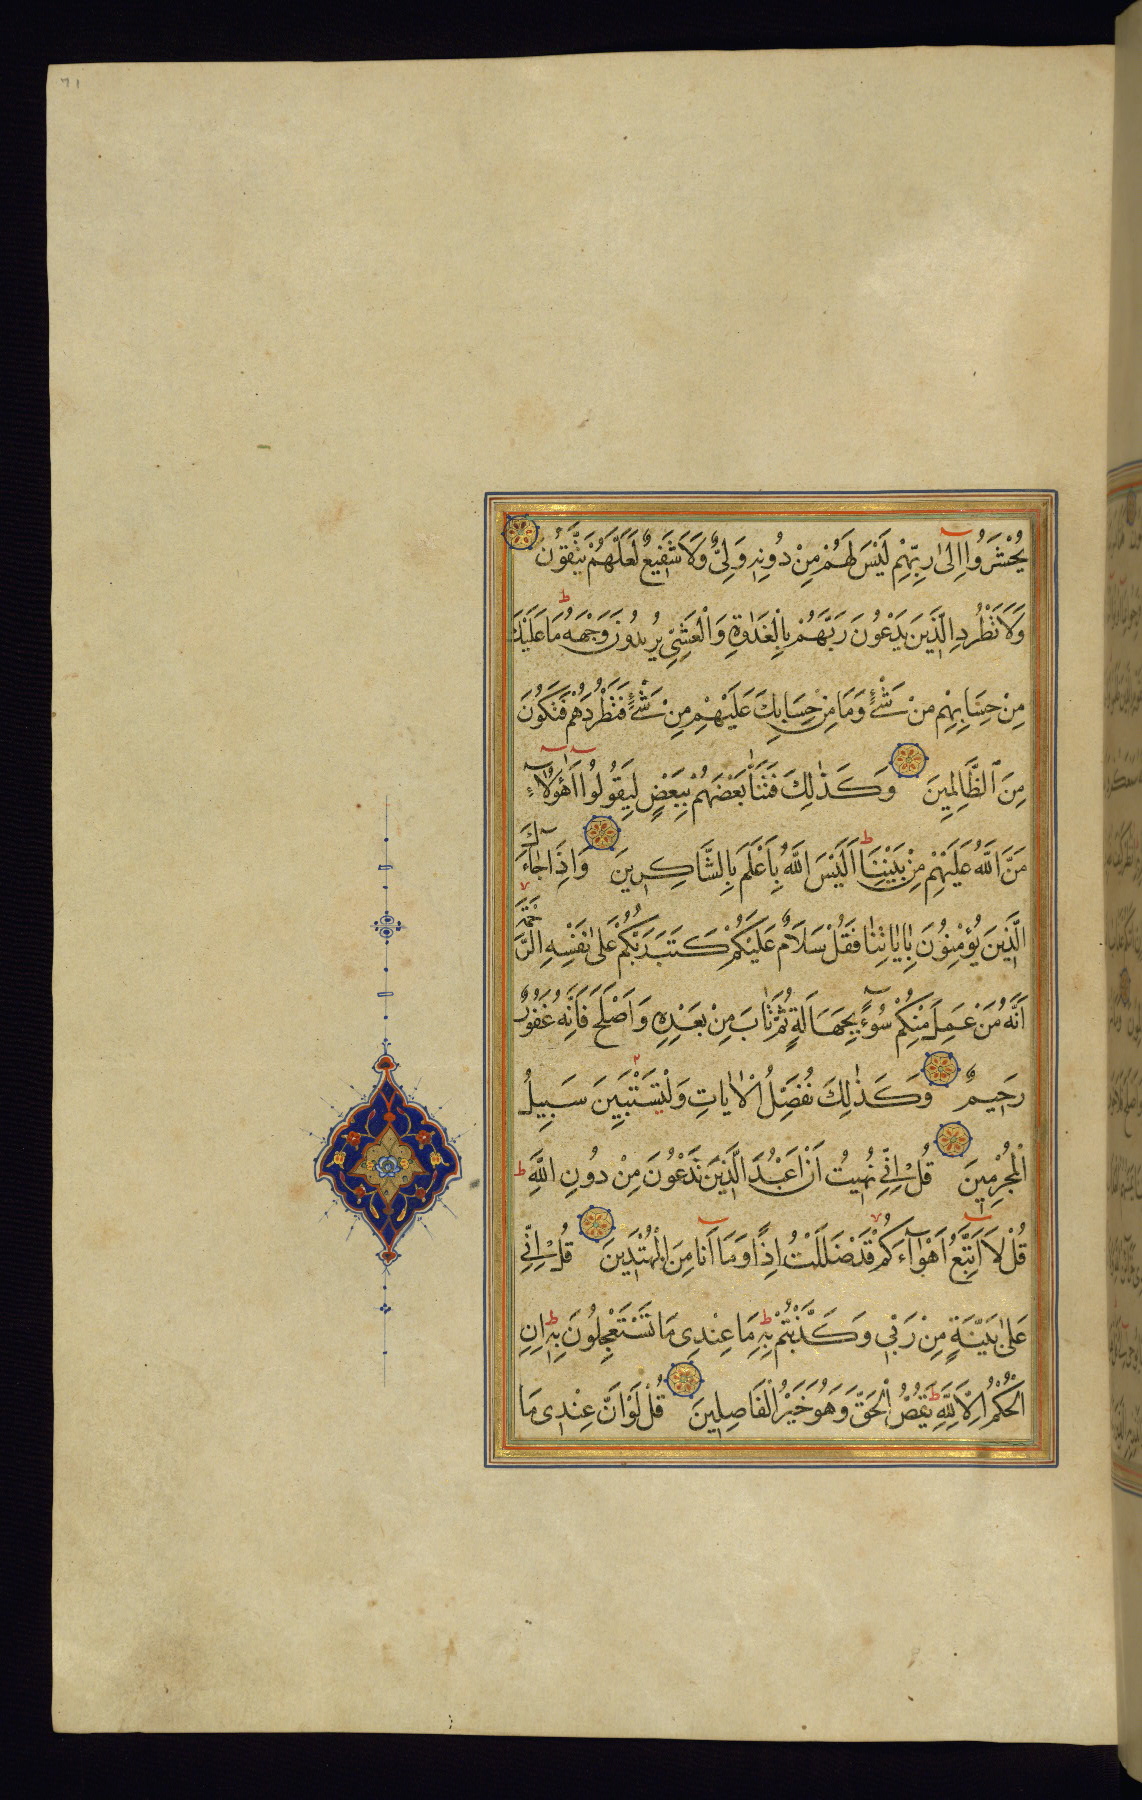 ٦١
يُحْشَرُوا اِلىٰ رَبِّهِمْ لَيْسَ لَهُمْ مِنْ دُونِهِ وَلِيٌّ وَلَا شَفِيعٌ لَعَلَّهُمْ يَتَّقُونَ
وَلَا تَطْرُدِ الَّذِينَ يَدْعُونَ رَبَّهُمْ بِالْغَدَاوةِ وَالْعَشِيِّ يُرِيدُونَ وَجْهَهُ ط مَا عَلَيْكَ
مِنْ حِسَابِهِمْ مِنْ شَيْءٍ وَمَا مِنْ حِسَابِكَ عَلَيْهِمْ مِنْ شَيْءٍ فَتَطْرُدَهُمْ فَتَكُونَ
مِنَ الظَّالِمِينَ وَكَذٰلِكَ فَتَنَّا بَعْضَهُمْ بِبَعْضٍ لِيَقُولُوا اَهٰؤُلَاۤءِ
مَنَّ اللّٰهُ عَلَيْهِمْ مِنْ بَيْنِنَا ط اَلَيْسَ اللّٰهُ بِاَعْلَمَ بِالشَّاكِرِينَ وَاِذَا جَاۤءَكَ
الَّذِينَ يُؤْمِنُونَ بِاٰيَاتِنَا فَقُلْ سَلَامٌ عَلَيْكُمْ كَتَبَ رَبُّكُمْ عَلىٰ نَفْسِهِ الرَّحْمَةَ
اَنَّهُ مَنْ عَمِلَ مِنْكُمْ سُوۤءًا بِجَهَالَةٍ ثُمَّ تَابَ مِنْ بَعْدِهِ وَاَصْلَحَ فَاَنَّهُ غَفُورٌ
رَحِيمٌ وَكَذٰلِكَ نُفَصِّلُ الْاٰيَاتِ وَلِيَسْتَبِينَ سَبِيلُ
الْمُجْرِمِينَ قُلْ اِنِّي نُهِيتُ اَنْ اَعْبُدَ الَّذِينَ تَدْعُونَ مِنْ دُونِ اللّٰهِ ط
قُلْ لَا اَتَّبِعُ اَهْوَاۤءَكُمْ قَدْ ضَلَلْتُ اِذًا وَمَا اَنَا مِنَ الْمُهْتَدِينَ قُلْ اِنِّي
عَلىٰ بَيِّنَةٍ مِنْ رَبِّي وَكَذَّبْتُمْ بِهِ ط مَا عِنْدِي مَا تَسْتَعْجِلُونَ بِهِ ط اِنِ
الْحُكْمُ اِلَّا لِلّٰهِ ط يَقُصُّ الْحَقَّ وَهُوَ خَيْرُ الْفَاصِلِينَ قُلْ لَوْ اَنَّ عِنْدِي مَا